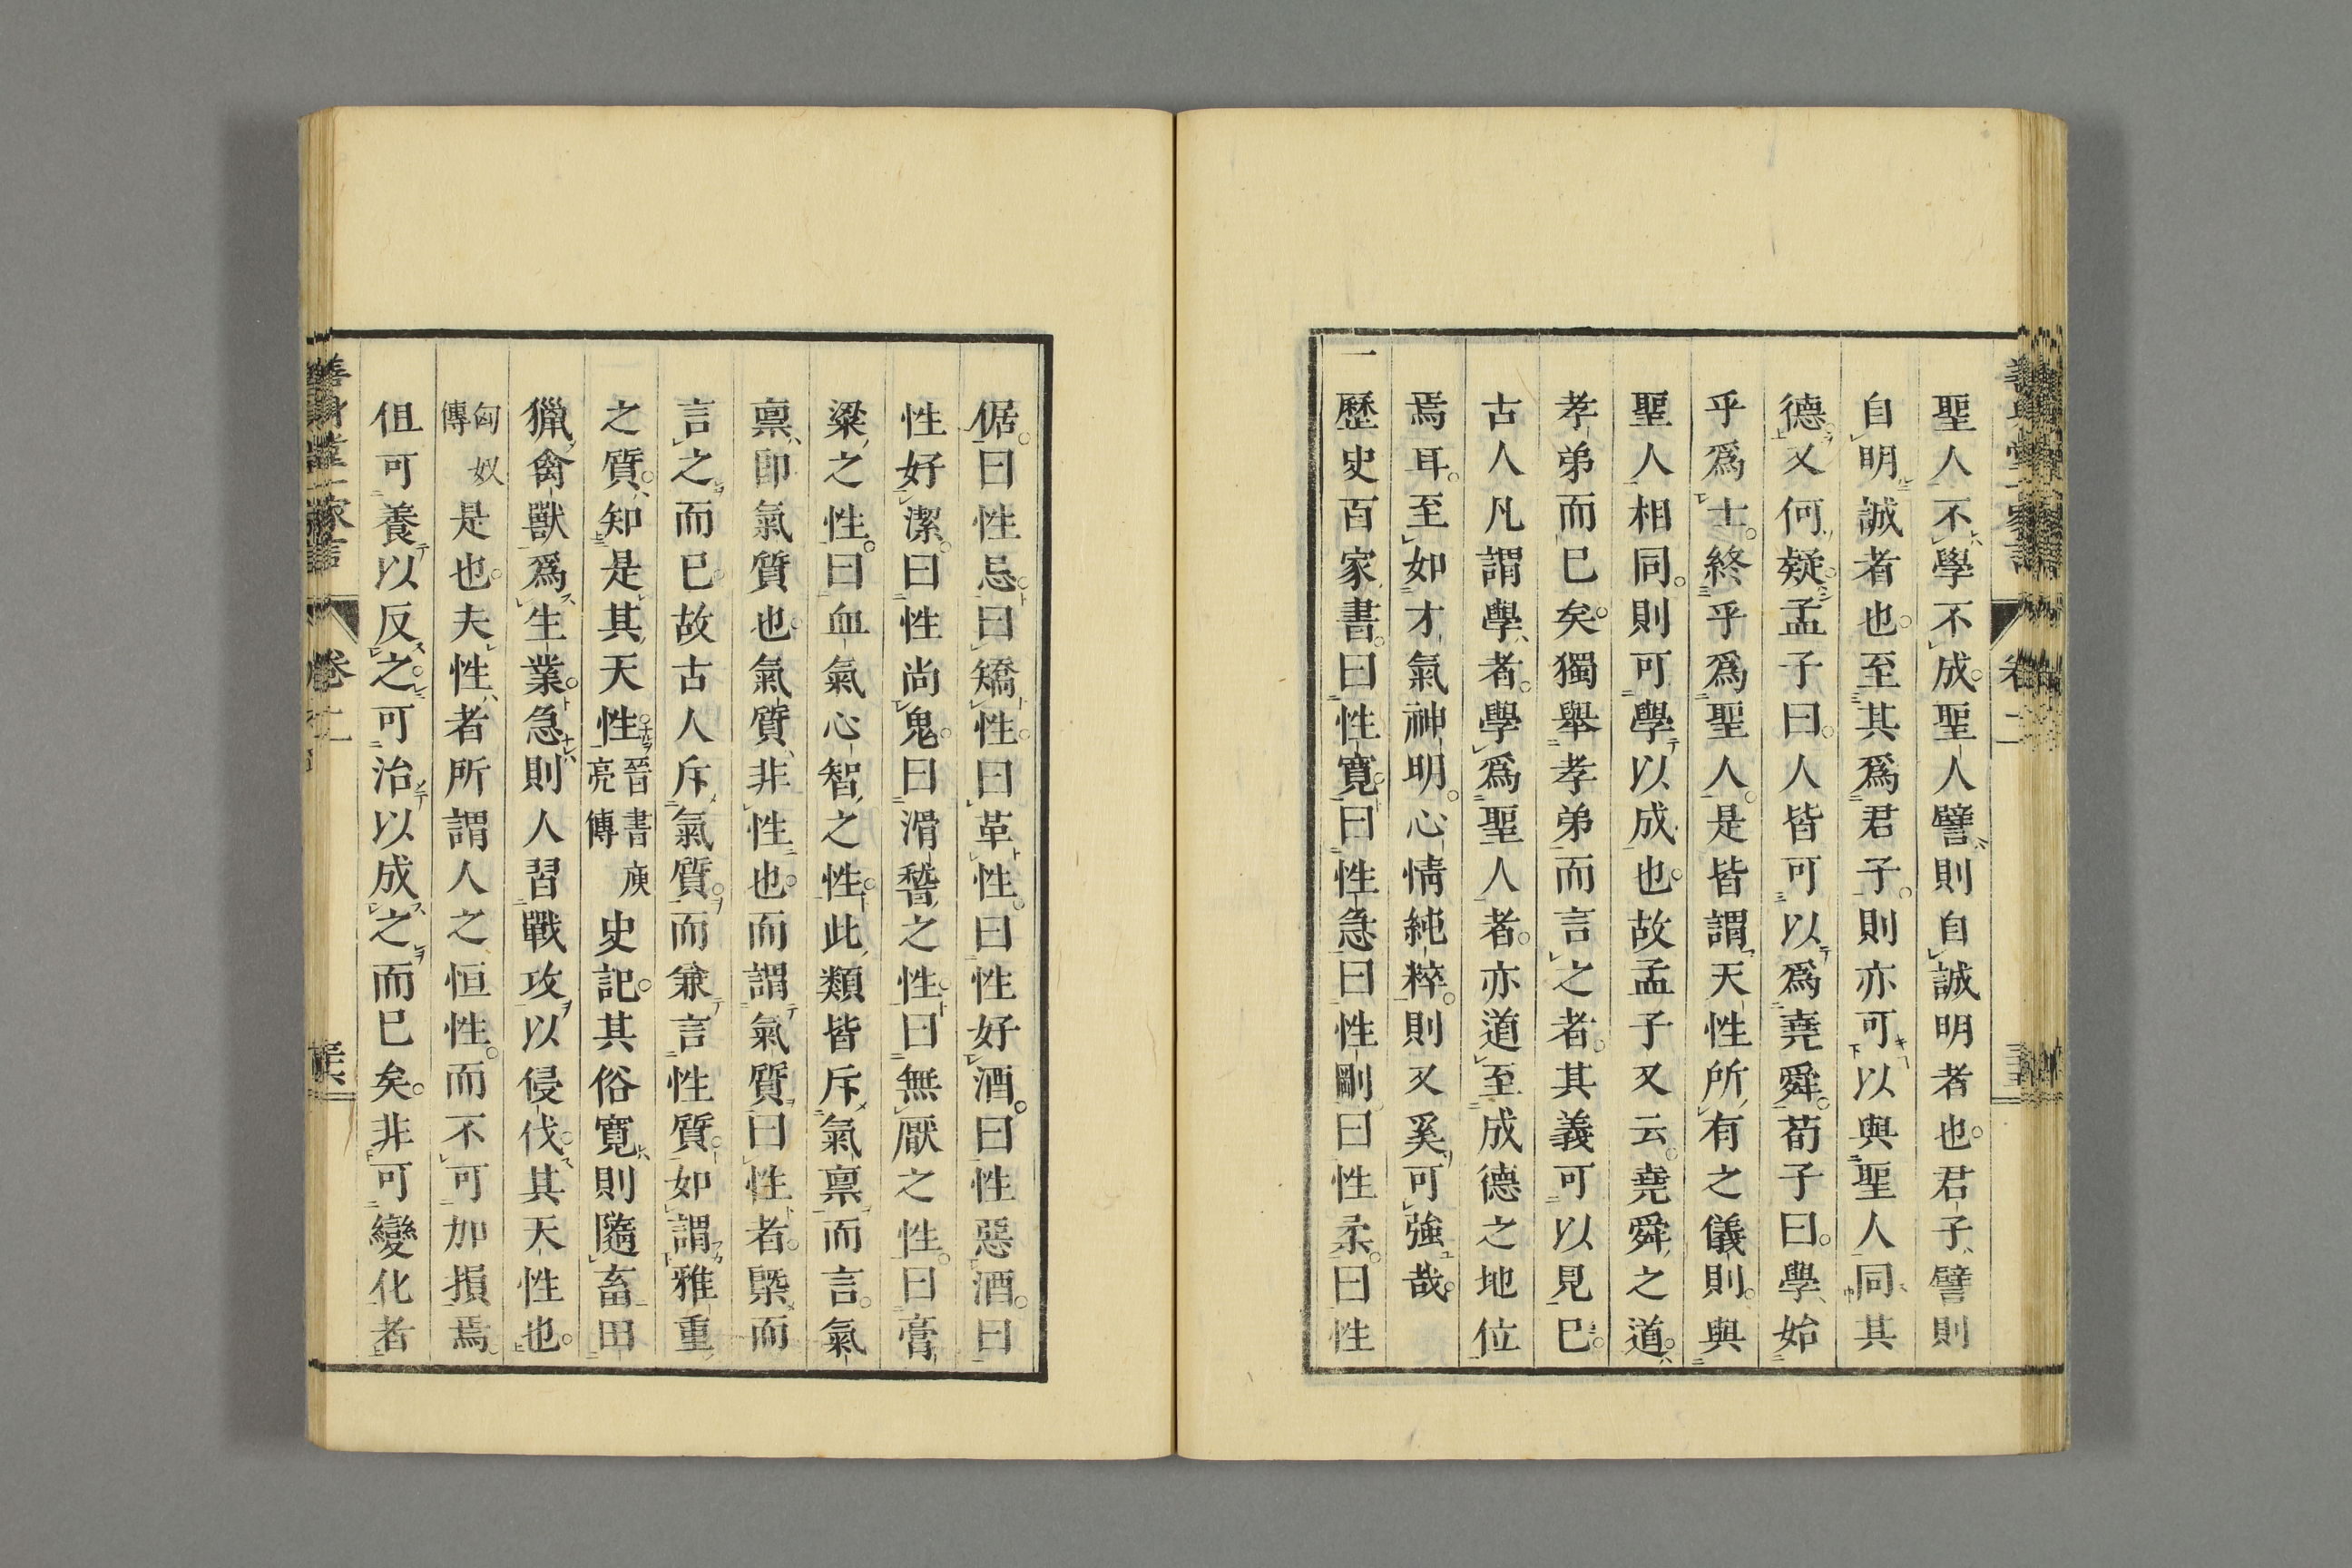 聖人不學不成。聖人譬則自誠明者也。君子譬則
自明誠者也。至其爲君子。則亦可以與聖人同其
德。又何疑。孟子曰。人皆可以爲堯舜。荀子曰。學始
乎爲士。終乎爲聖人。是皆謂天性所有之儀則。與
聖人相同。則可學以成也。故孟子又云。堯舜之道。
孝弟而已矣。獨舉孝弟而言之者。其義可以見已。
古人凡謂學者。學爲聖人者。亦道至成德之地位
焉耳。至如才氣神明。心情純粹。則又奚可強哉。
一歷史百家書。曰性寬。曰性急。曰性剛。曰性柔。曰性
倨。曰性忌。曰矯性。曰革性。曰性好酒。曰性惡酒。曰
性好潔。曰性尚鬼。曰滑稽之性。曰無厭之性。曰膏
粱之性。曰血氣心智之性。此類皆斥氣稟而言。氣
稟即氣質也。氣質非性也。而謂氣質曰性者。槩而
言之而已。故古人斥氣質。而兼言性質。如謂雅重
之質。知是其天性。晉書庾亮傳史記。其俗寬則隨畜田
獵禽獸爲生業。急則人習戰攻以侵伐。其天性也。
匈奴傳是也。夫性者所謂人之恒性。而不可加損焉。
但可養以反之。可治以成之而已矣。非可變化者
卷二
卷二